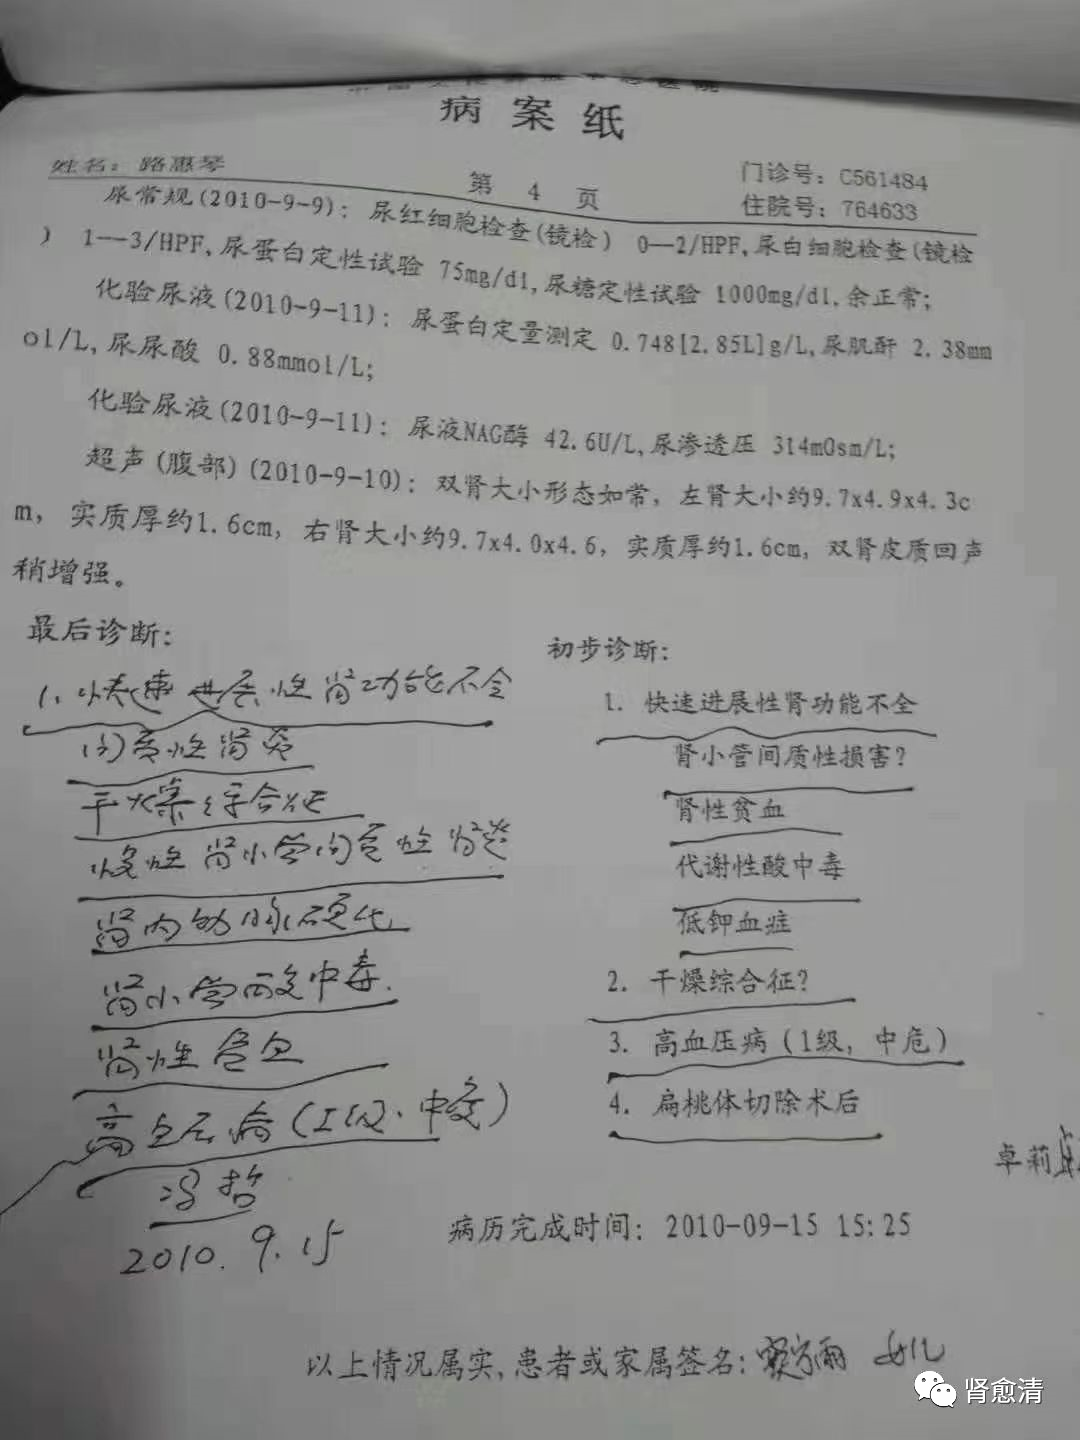 病案纸
姓名：路惠琴
第 4 页
门诊号：C561484
住院号：764633
尿常规(2010-9-9)：尿红细胞检查(镜检) 0—2/HPF,尿白细胞检查(镜检
) 1—3/HPF,尿蛋白定性试验 75mg/dl,尿糖定性试验 1000mg/dl,余正常；
化验尿液(2010-9-11)：尿蛋白定量测定 0.748[2.85L]g/L,尿肌酐 2.38mm
ol/L,尿尿酸 0.88mmol/L；
化验尿液(2010-9-11)：尿液NAG酶 42.6U/L,尿渗透压 314mOsm/L；
超声(腹部)(2010-9-10)：双肾大小形态如常，左肾大小约9.7x4.9x4.3c
m，实质厚约1.6cm，右肾大小约9.7x4.0x4.6，实质厚约1.6cm，双肾皮质回声
稍增强。
最后诊断：
1、快速进展性肾功能不全
间质性肾炎
干燥综合征
慢性肾小管间质性肾炎
肾内动脉硬化
肾小管酸中毒
肾性贫血
高血压病(I级、中危)
冯哲
2010.9.15
初步诊断：
1. 快速进展性肾功能不全
肾小管间质性损害？
肾性贫血
代谢性酸中毒
低钾血症
2. 干燥综合征？
3. 高血压病(1级，中危)
4. 扁桃体切除术后
卓莉
病历完成时间：2010-09-15 15:25
以上情况属实,患者或家属签名：
女儿
肾愈清